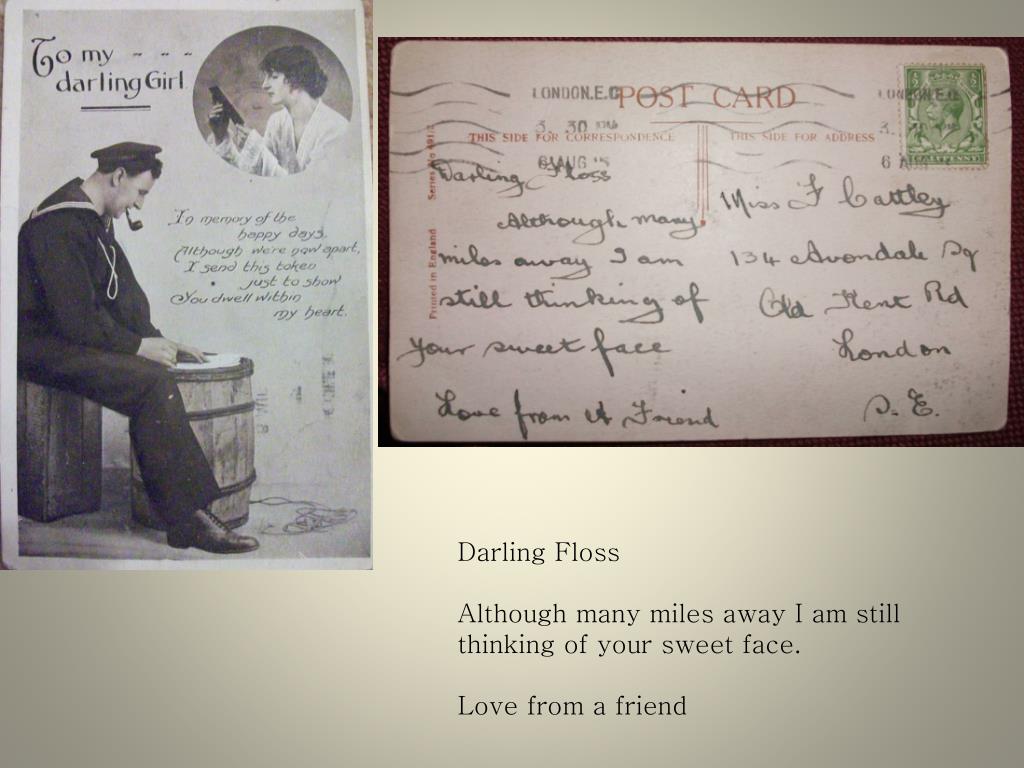 To my - - -
darling Girl
In memory of the
happy days.
Although we're now apart,
I send this token
just to show
You dwell within
my heart.
LONDON.E.C
3. 30 PM
6 AUG 15
POST CARD
THIS SIDE FOR CORRESPONDENCE
THIS SIDE FOR ADDRESS
Printed in England
Darling Floss
Although many
miles away I am
still thinking of
your sweet face
Love from A Friend
Miss F Cattley
134 Avondale Sq
Old Kent Rd
London
S. E.
Darling Floss
Although many miles away I am still
thinking of your sweet face.
Love from a friend